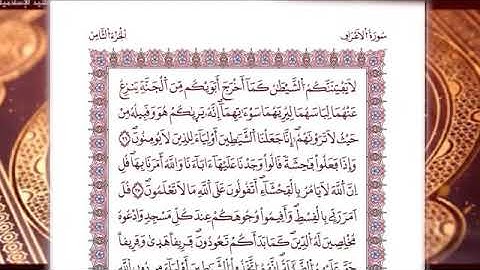 سُورَةُ الأَعْرَافِ
الجُزْءُ الثَّامِنُ
لَا يَفْتِنَنَّكُمُ الشَّيْطَٰنُ كَمَآ أَخْرَجَ أَبَوَيْكُم مِّنَ الْجَنَّةِ يَنزِعُ
عَنْهُمَا لِبَاسَهُمَا لِيُرِيَهُمَا سَوْءَٰتِهِمَآ إِنَّهُۥ يَرَىٰكُمْ هُوَ وَقَبِيلُهُۥ مِنْ
حَيْثُ لَا تَرَوْنَهُمْ إِنَّا جَعَلْنَا الشَّيَٰطِينَ أَوْلِيَآءَ لِلَّذِينَ لَا يُؤْمِنُونَ
وَإِذَا فَعَلُوا فَٰحِشَةً قَالُوا وَجَدْنَا عَلَيْهَآ ءَابَآءَنَا وَاللَّهُ أَمَرَنَا بِهَا قُلْ
إِنَّ اللَّهَ لَا يَأْمُرُ بِالْفَحْشَآءِ أَتَقُولُونَ عَلَى اللَّهِ مَا لَا تَعْلَمُونَ قُلْ
أَمَرَ رَبِّي بِالْقِسْطِ وَأَقِيمُوا وُجُوهَكُمْ عِندَ كُلِّ مَسْجِدٍ وَادْعُوهُ
مُخْلِصِينَ لَهُ الدِّينَ كَمَا بَدَأَكُمْ تَعُودُونَ فَرِيقًا هَدَىٰ وَفَرِيقًا